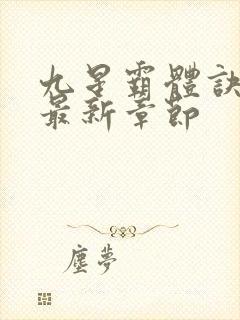 九星霸體訣
最新章節
塵夢